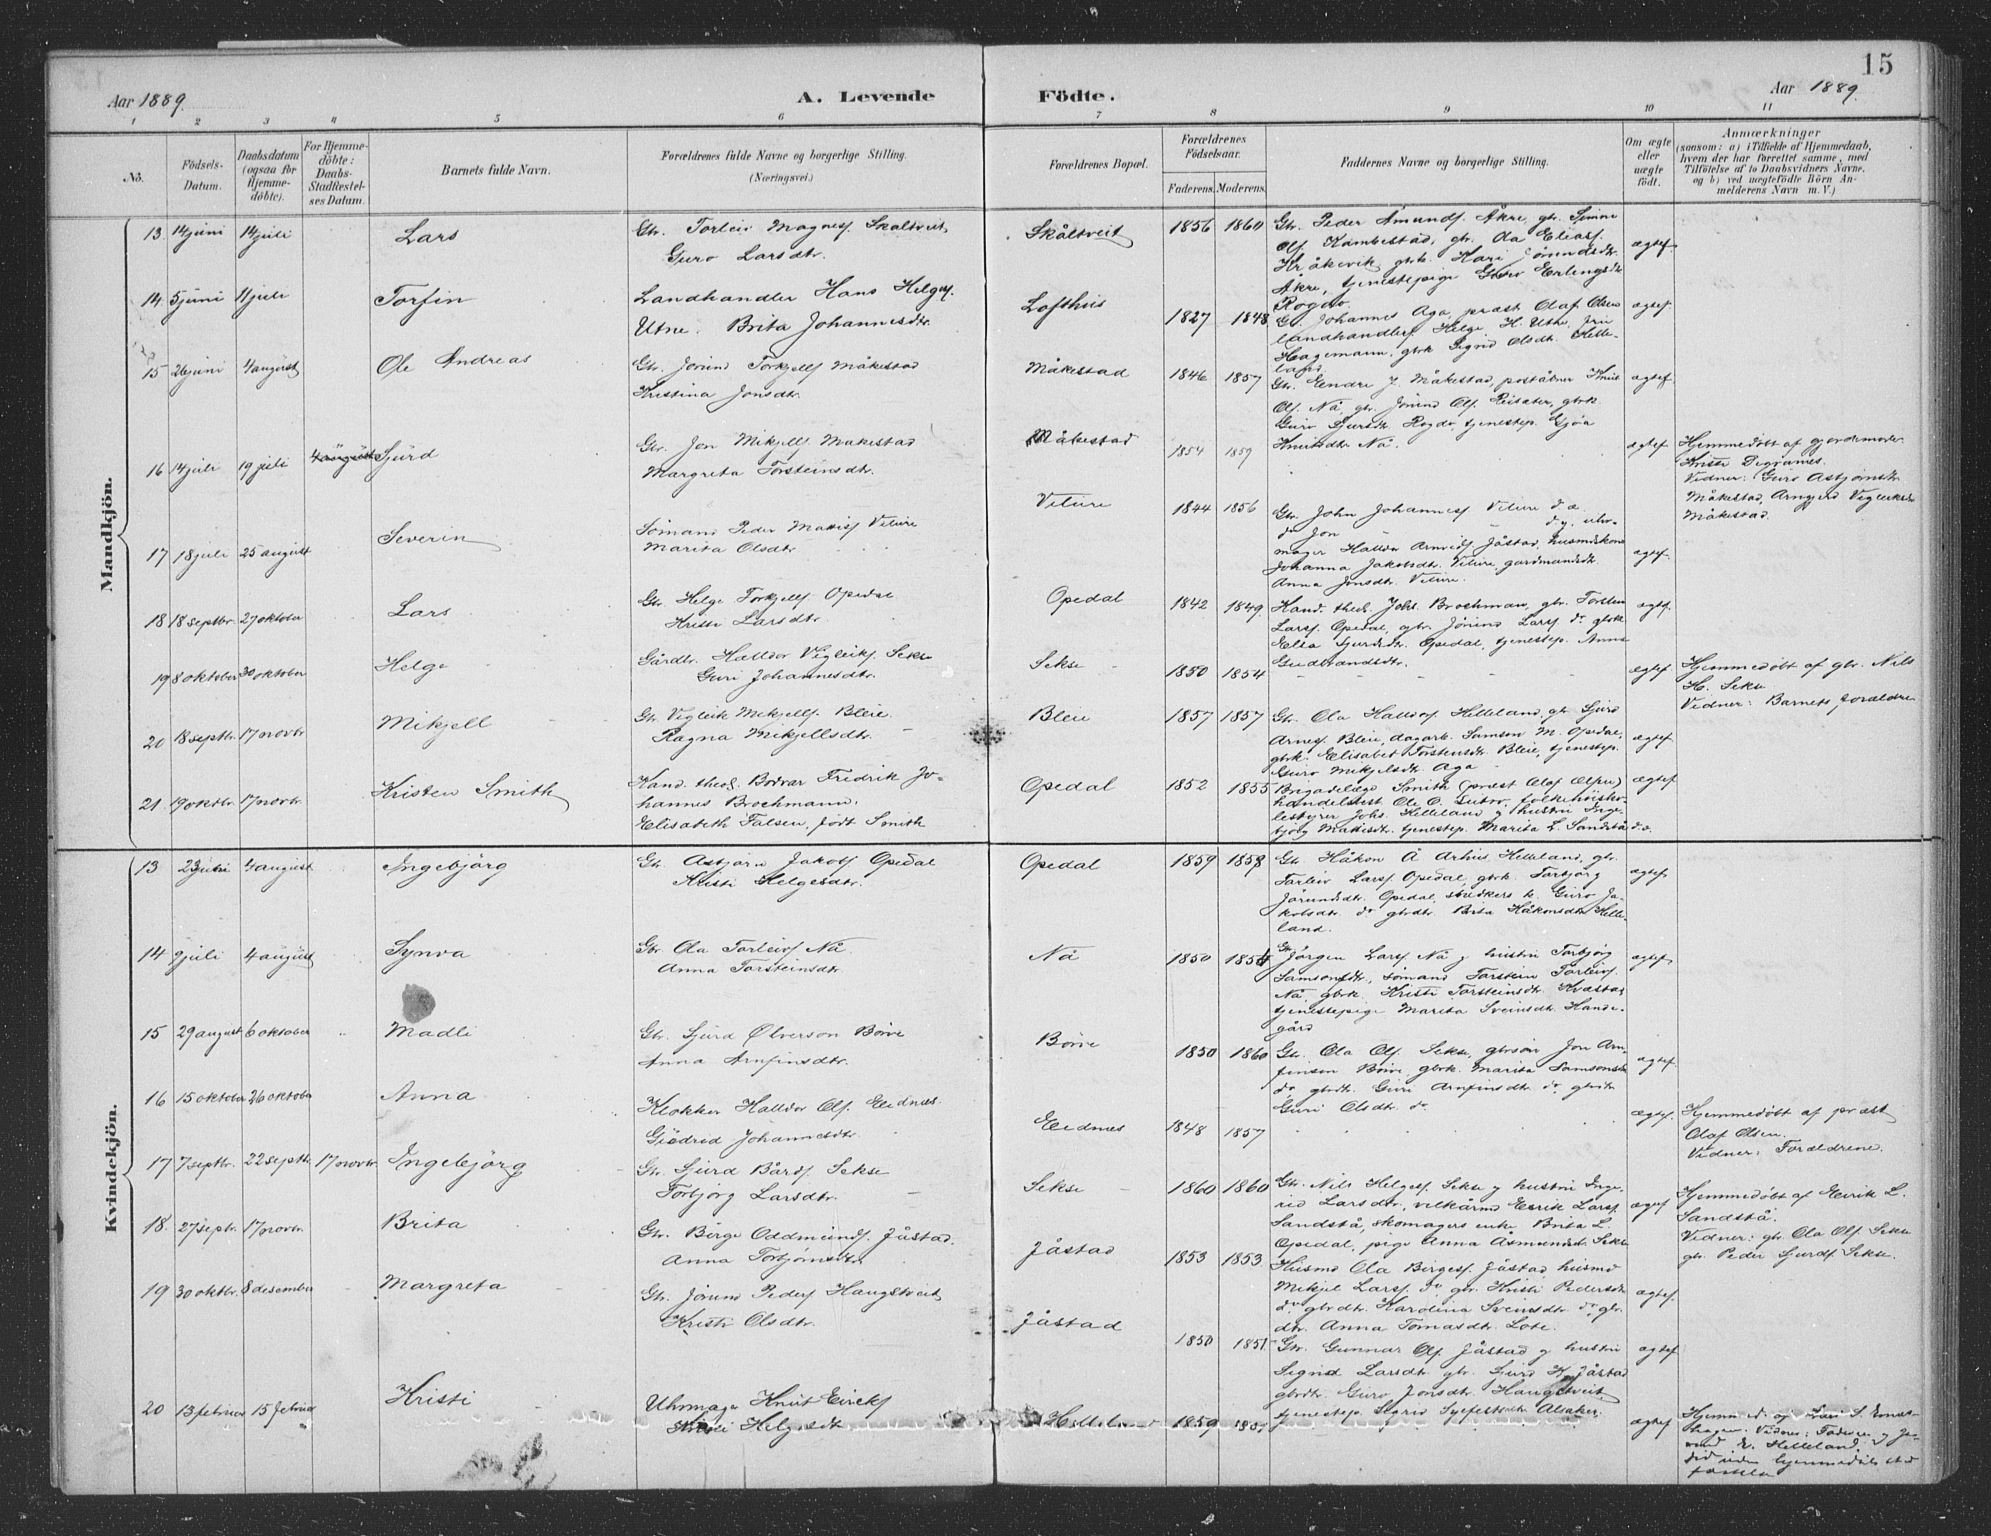 15
Aar 1889.
A. Levende
Födte.
Aar 1889.
1 2 3 4 5 6 7 8 9 10 11
No.
Födsels-
Datum.
Daabsdatum
(ogsaa for
Hjemme-
döbte).
For Hjemme-
döbte:
Daabs-
Stadfæstel-
ses Datum.
Barnets fulde Navn.
Forældrenes fulde Navne og borgerlige Stilling.
(Næringsvei.)
Forældrenes Bopæl.
Forældrenes
Födselsaar.
Faderens. Moderens.
Faddernes Navne og borgerlige Stilling.
Om ægte
eller
uægte
födt.
Anmærkninger
(saasom: a) i Tilfælde af Hjemmedaab,
hvem der har forrettet samme, med
Tilföielse af to Daabsvidners Navne.
og b) ved uægtefödte Börn An-
melderens Navn m. V.)
Mandkjön.
13 14 juni 14 juli Lars
Gbr. Torleiv Magnesf. Skaltveit
Guro Larsdtr.
Skåltveit 1856 1860
Gbr. Peder Åmundsf. Åkre, gbr.
Olf. Kambestad, gbr. Ola Eliasf.
Kråkevik gbrk. Kari Jörundsdtr.
Åkre, tjenestepige Guro Erlingsdtr.
Rogdo
ægtef.
14 5 juni 11 juli Torfin
Landhandler Hans Helgesf.
Utne. Brita Johannesdtr.
Lofthus 1827 1848
G. Johannes Aga, præst Olaf Olsen
landhandlerf. Helge H. Utne, fru
Hagemann, gbrk Sigrid Olsdtr. Helle-
land.
ægtef.
15 26 juni 4 august Ole Andreas
Gbr. Jörund Torkjellsf. Måkestad
Kristina Jonsdtr.
Måkestad 1846 1857
Gbr. Eendre J. Måkestad, poståbner Knut
Olf. Nå, gbr. Jörund Olf. Reisæter, gbrk.
Guro Sjursdtr. Rogdo, tjenestep. Gjöa
Knutsdtr Nå.
ægtef.
16 14 juli 19 juli 4 august Sjurd
Gbr. Jon Mikjellsf. Måkestad
Margreta Torsteinsdtr.
Måkestad 1854 1859 ægtef
Hjemmedöbt af gjordemoder
Kristi Degranes.
Vidner: Guro Asbjörnsdtr.
Måkestad, Arngjerd Vigleiksdtr
Måkestad.
17 18 juli 25 august Severin
Sömand Peder Mattisf Viture
Marita Olsdtr
Viture 1844 1856
Gbr. John Johannesf Viture d.æ.
do Jon d.y. uhr-
mager Halldor Arnvidsf. Jåstad, husmdskone
Johanna Jakobsdtr. Viture, gardmandsdtr.
Anna Jonsdtr. Viture.
ægtef.
18 18 septbr. 27 oktober Lars
Gbr. Helge Torkjellsf Opedal
Kristi Larsdtr.
Opedal 1842 1849
Kand. theol. Johs. Brochman, gbr. Torsten
Larsf. Opedal, gbr. Jörund Larsf do gbrk
Ella Sjursdtr. Opedal, tjenestep. Anna
Gudbrandsdtr.
ægtef.
19 8 oktober 30 oktober Helge
Gårdbr. Halldor Vigleiksf. Sekse
Guri Johannesdtr.
Sekse 1850 1854 ægtef
Hjemmedöbt af gbr. Nils
H. Sekse
Vidner: Barnets forældre
20 18 septbr. 17 novbr. Mikjell
Gbr. Vigleik Mikjellsf. Bleie
Ragna Mikjellsdtr.
Bleie 1857 1857
Gbr. Ola Halldorsf Helleland, gbr. Sjurd
Arnesf. Bleie, dagarb. Samson M. Opedal,
gbrk. Elisabet Torstensdtr. Bleie, tjenestep.
Guro Mikjelsdtr Aga
ægtef.
21. 19 oktbr. 17 novbr. Kristen Smith
Kand. theol. Bodvar Fredrik Jo-
hannes Brochmann,
Elisabeth Falsen, födt Smith
Opedal 1852 1855
Brigadelæge Smith (præst Olaf Olsen)
handelsbest Ole O.
bestyrer Johs. Helleland, hustru Inge-
björg Mattisdtr. tjenestep. Marita L. Sandstå d.æ.
ægtef
Kvindekjön.
13 23 juni 4 august Ingebjörg
Gbr. Asbjörn Jakobsf Opedal
Kristi Helgesdtr.
Opedal 1859 1858
Gbr. Håkon Å Arhus Helleland, gbr.
Torleiv Larsf Opedal, gbrk. Torbjörg
Jörundsdtr. Opedal, snidkers k. Guro Ja-
kobsdtr. do gbrdtr. Brita Håkonsdtr. Helle-
land.
ægtef.
14 9 juli 4 august Synva
Gbr. Ola Torleivsf Nå
Anna Torsteinsdtr.
Nå 1850 1854
Gbr Jörgen Larsf Nå og hustru Torbjörg
Samsonsdtr., sömand Torstein Torleivsf.
Nå, gbrk. Kristi Torsteinsdtr. Kvæstad,
tjenestepige Marita Sveinsdtr. Hande-
gård
ægtef.
15 29 august 6 oktober Madli
Gbr. Sjurd Ölverson Börve
Anna Arnfinsdtr.
Börve 1850 1860
Gbr. Ola Olf. Sekse, gbrsön Jon Arn-
finson Börve gbrk. Marita Samsonsdtr
do, gbrdtr. Guri Arnfinsdtr. do, gbrdtr
Guri Olsdtr. do
ægtef.
16 15 oktober 26 oktober Anna
Klokker Halldor Olf. Eidnes
Gudrid Johannesdtr.
Eidnes 1848 1857 ægtef.
Hjemmedöbt af præst
Olaf Olsen.
Vidner: Forældrene.
17 7 septbr. 22 septbr. 17 novbr. Ingebjörg
Gbr. Sjurd Bårdsf Sekse
Torbjörg Larsdtr.
Sekse 1860 1860
Gbr. Nils Helgesf. Sekse og hustru Inge-
rid Larsdtr., vilkårmd Eirik Larsf.
Sandstå, skomagers enke Brita L.
Opedal, pige Anna Åsmundsdtr. Sekse
ægtef
Hjemmedöbt af Eirik L.
Sandstå.
Vidner: gbr. Ola Olf. Sekse
gbr. Peder Sjurdsf Sekse.
18. 27 septbr. 17 novbr. Brita
Gbr. Börge Oddmundsf. Jåstad
Anna Torbjörnsdtr.
Jåstad 1853 1853
Husmd Ola Börgesf. Jåstad, husmd
Mikjel Larsf. do, gbr. Kristi Pedersdtr
do, gbrdtr. Karolina Sveinsdtr do, gbr.
dtr. Anna Tomasdtr. Lote.
ægtef.
19 30 oktbr. 8 desember Margreta
Gbr. Jörund Pedersf Haugstveit
Kristi Olsdtr.
Jåstad 1850 1851
Gbr. Gunnar Olf. Jåstad og hustru
Sigrid Larsdtr. gbr. Sjurd K. Jåstad
gbrdtr. Guro Jonsdtr. Haugstveit,
tjenestep. Sigrid Syfestsdtr Alsaker.
ægtef
20 13 februar 15 februar Kristi
Uhrmager Knut Eiriksf
Helgesdtr
Helleland 1859
ægtef